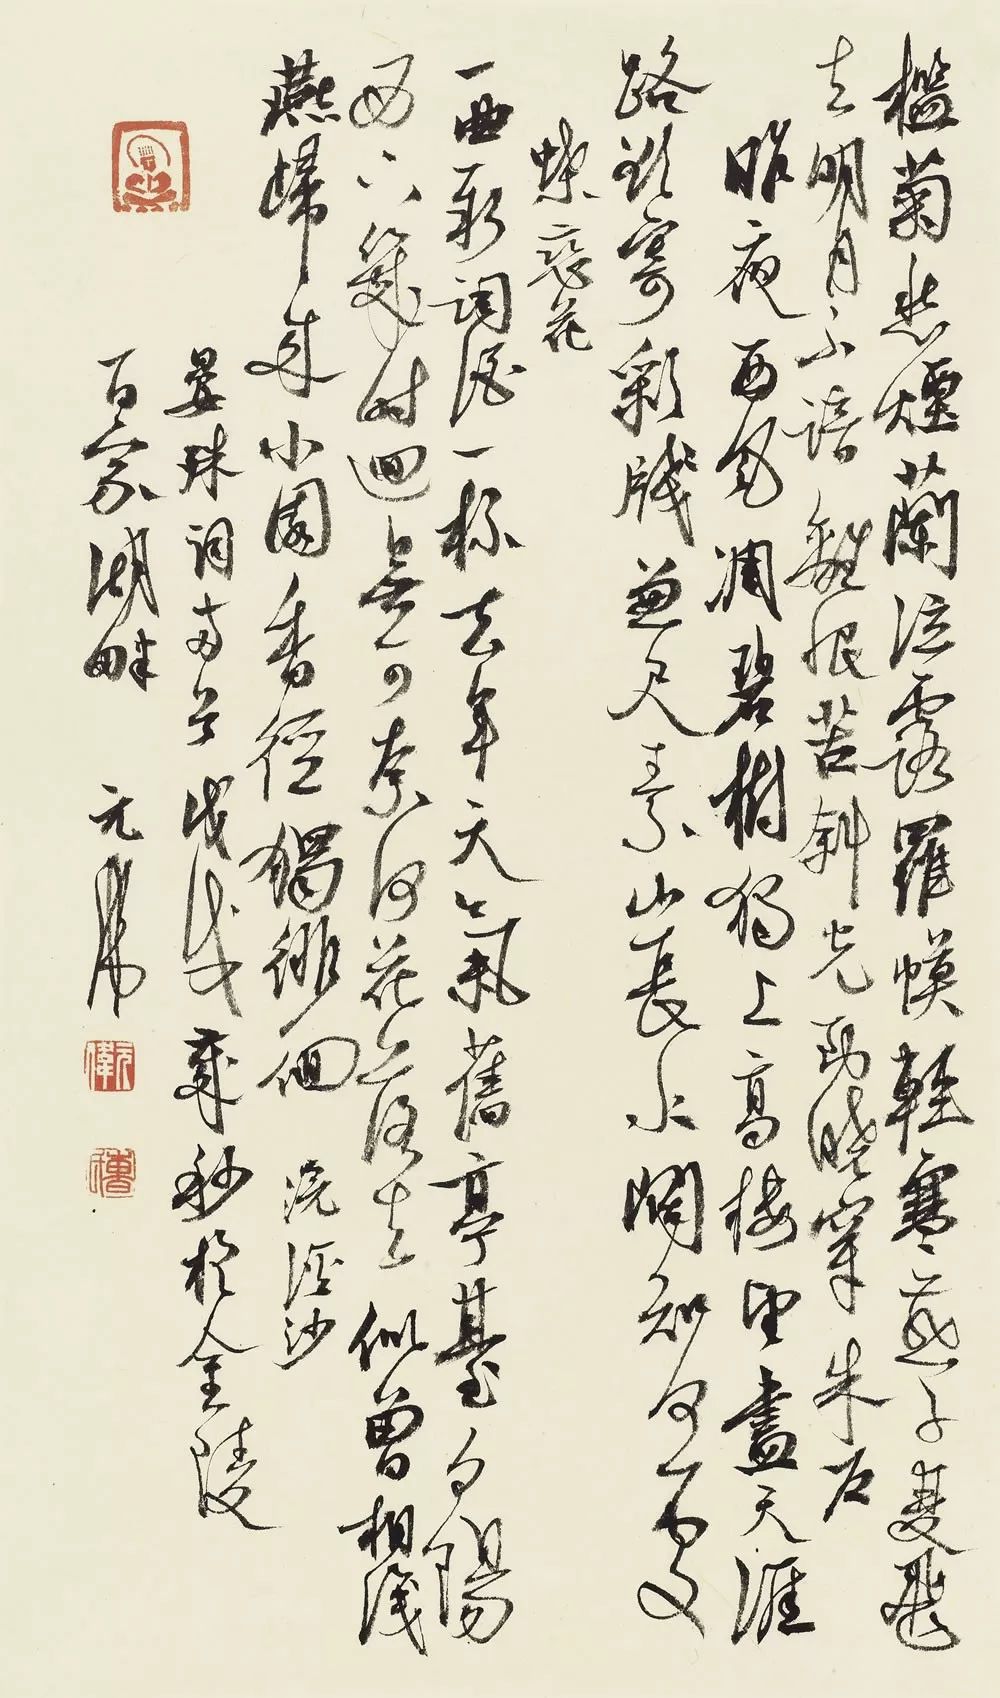 檻菊愁煙蘭泣露羅幙輕寒燕子雙飛
去明月不諳離恨苦斜光到曉穿朱户
昨夜西風凋碧樹獨上高樓望盡天涯
路欲寄彩牋兼尺素山長水闊知何處
蝶戀花
一曲新詞酒一杯去年天氣舊亭臺夕陽
西下幾時迴無可奈何花落去似曾相識
燕歸來小園香徑獨徘徊 浣溪沙
晏殊詞兩首 戊戌歲秒於金陵
百家湖畔 元